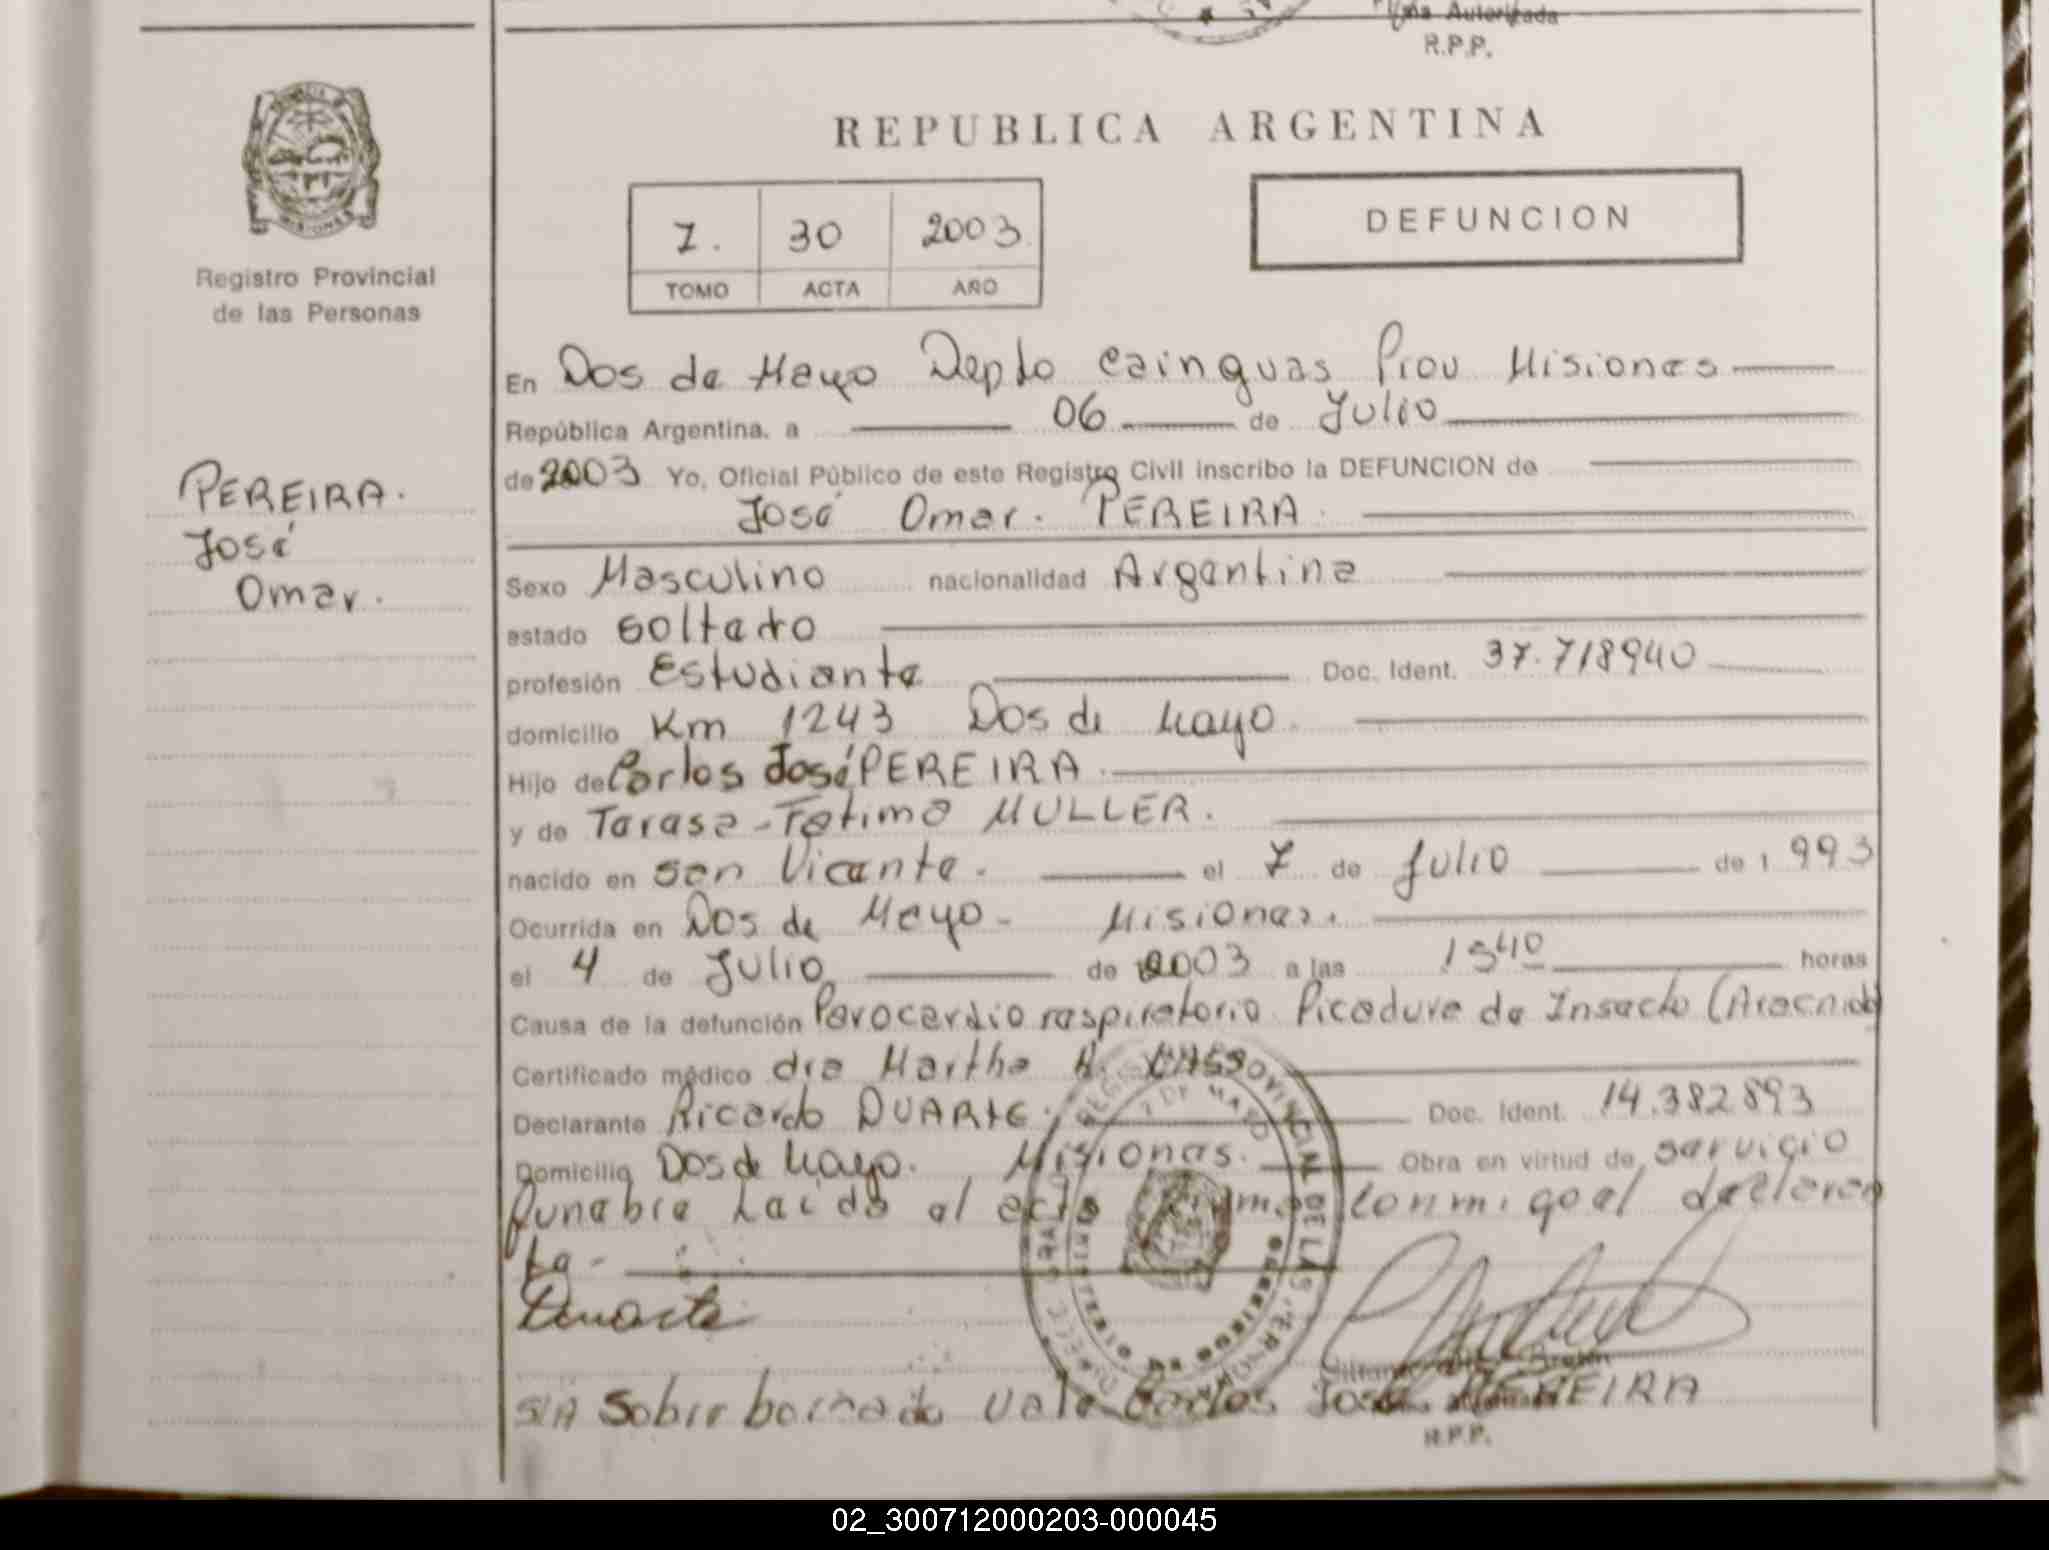 Autorizada
R.P.P.
REPUBLICA ARGENTINA
DEFUNCION
1. 30 2003
TOMO ACTA AÑO
Registro Provincial
de las Personas
PEREIRA.
José
Omar.
En Dos de Mayo Depto Cainguas Prov Misiones
República Argentina, a 06 de Julio
de 2003 Yo, Oficial Público de este Registro Civil inscribo la DEFUNCION de
José Omar. PEREIRA.
Sexo Masculino nacionalidad Argentina
estado soltero
profesión Estudiante Doc. Ident. 37.718940
domicilio Km 1243 Dos de Mayo.
Hijo de Carlos José PEREIRA.
y de Teresa-Fatima MULLER.
nacido en San Vicente. el 7 de Julio de 1 993
Ocurrida en Dos de Mayo- Misiones.
el 4 de Julio de 2003 a las horas
Causa de la defunción Parocardio respiratorio. Picadura de Insecto (Aracnido)
Certificado médico dra Martha
Declarante Ricardo DUARTE. Doc. Ident. 14.382893
Domicilio Dos de Mayo. Misiones. Obra en virtud de servicio
funebre Leida al acta conmigo el declaran
te-
Duarte
S/A Sobre borrado vale Carlos José PEREIRA
R.P.P.
02_300712000203-000045